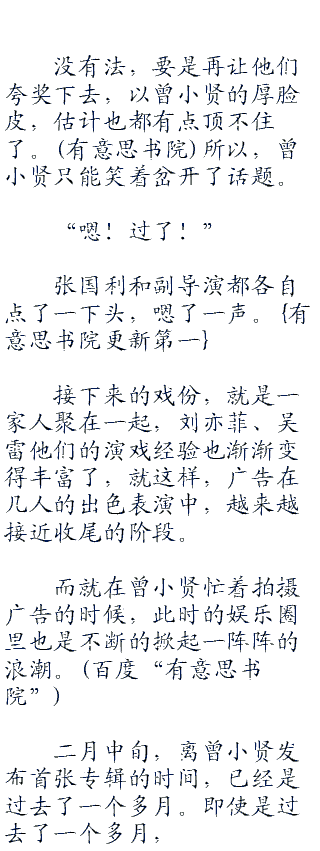 没有法，要是再让他们
夸奖下去，以曾小贤的厚脸
皮，估计也都有点顶不住
了。(有意思书院)所以，曾
小贤只能笑着岔开了话题。
“嗯！过了！”
张国利和副导演都各自
点了一下头，嗯了一声。{有
意思书院更新第一}
接下来的戏份，就是一
家人聚在一起，刘亦菲、吴
雷他们的演戏经验也渐渐变
得丰富了，就这样，广告在
几人的出色表演中，越来越
接近收尾的阶段。
而就在曾小贤忙着拍摄
广告的时候，此时的娱乐圈
里也是不断的掀起一阵阵的
浪潮。(百度“有意思书
院”)
二月中旬，离曾小贤发
布首张专辑的时间，已经是
过去了一个多月。即使是过
去了一个多月，